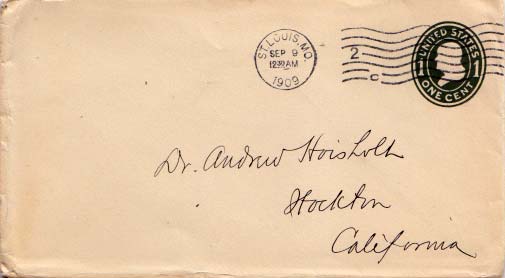 ST. LOUIS, MO.
SEP 9
12:30 AM
1909
2
C
UNITED STATES
1 1
ONE CENT
Dr. Andrew Hoisholt
Stockton
California